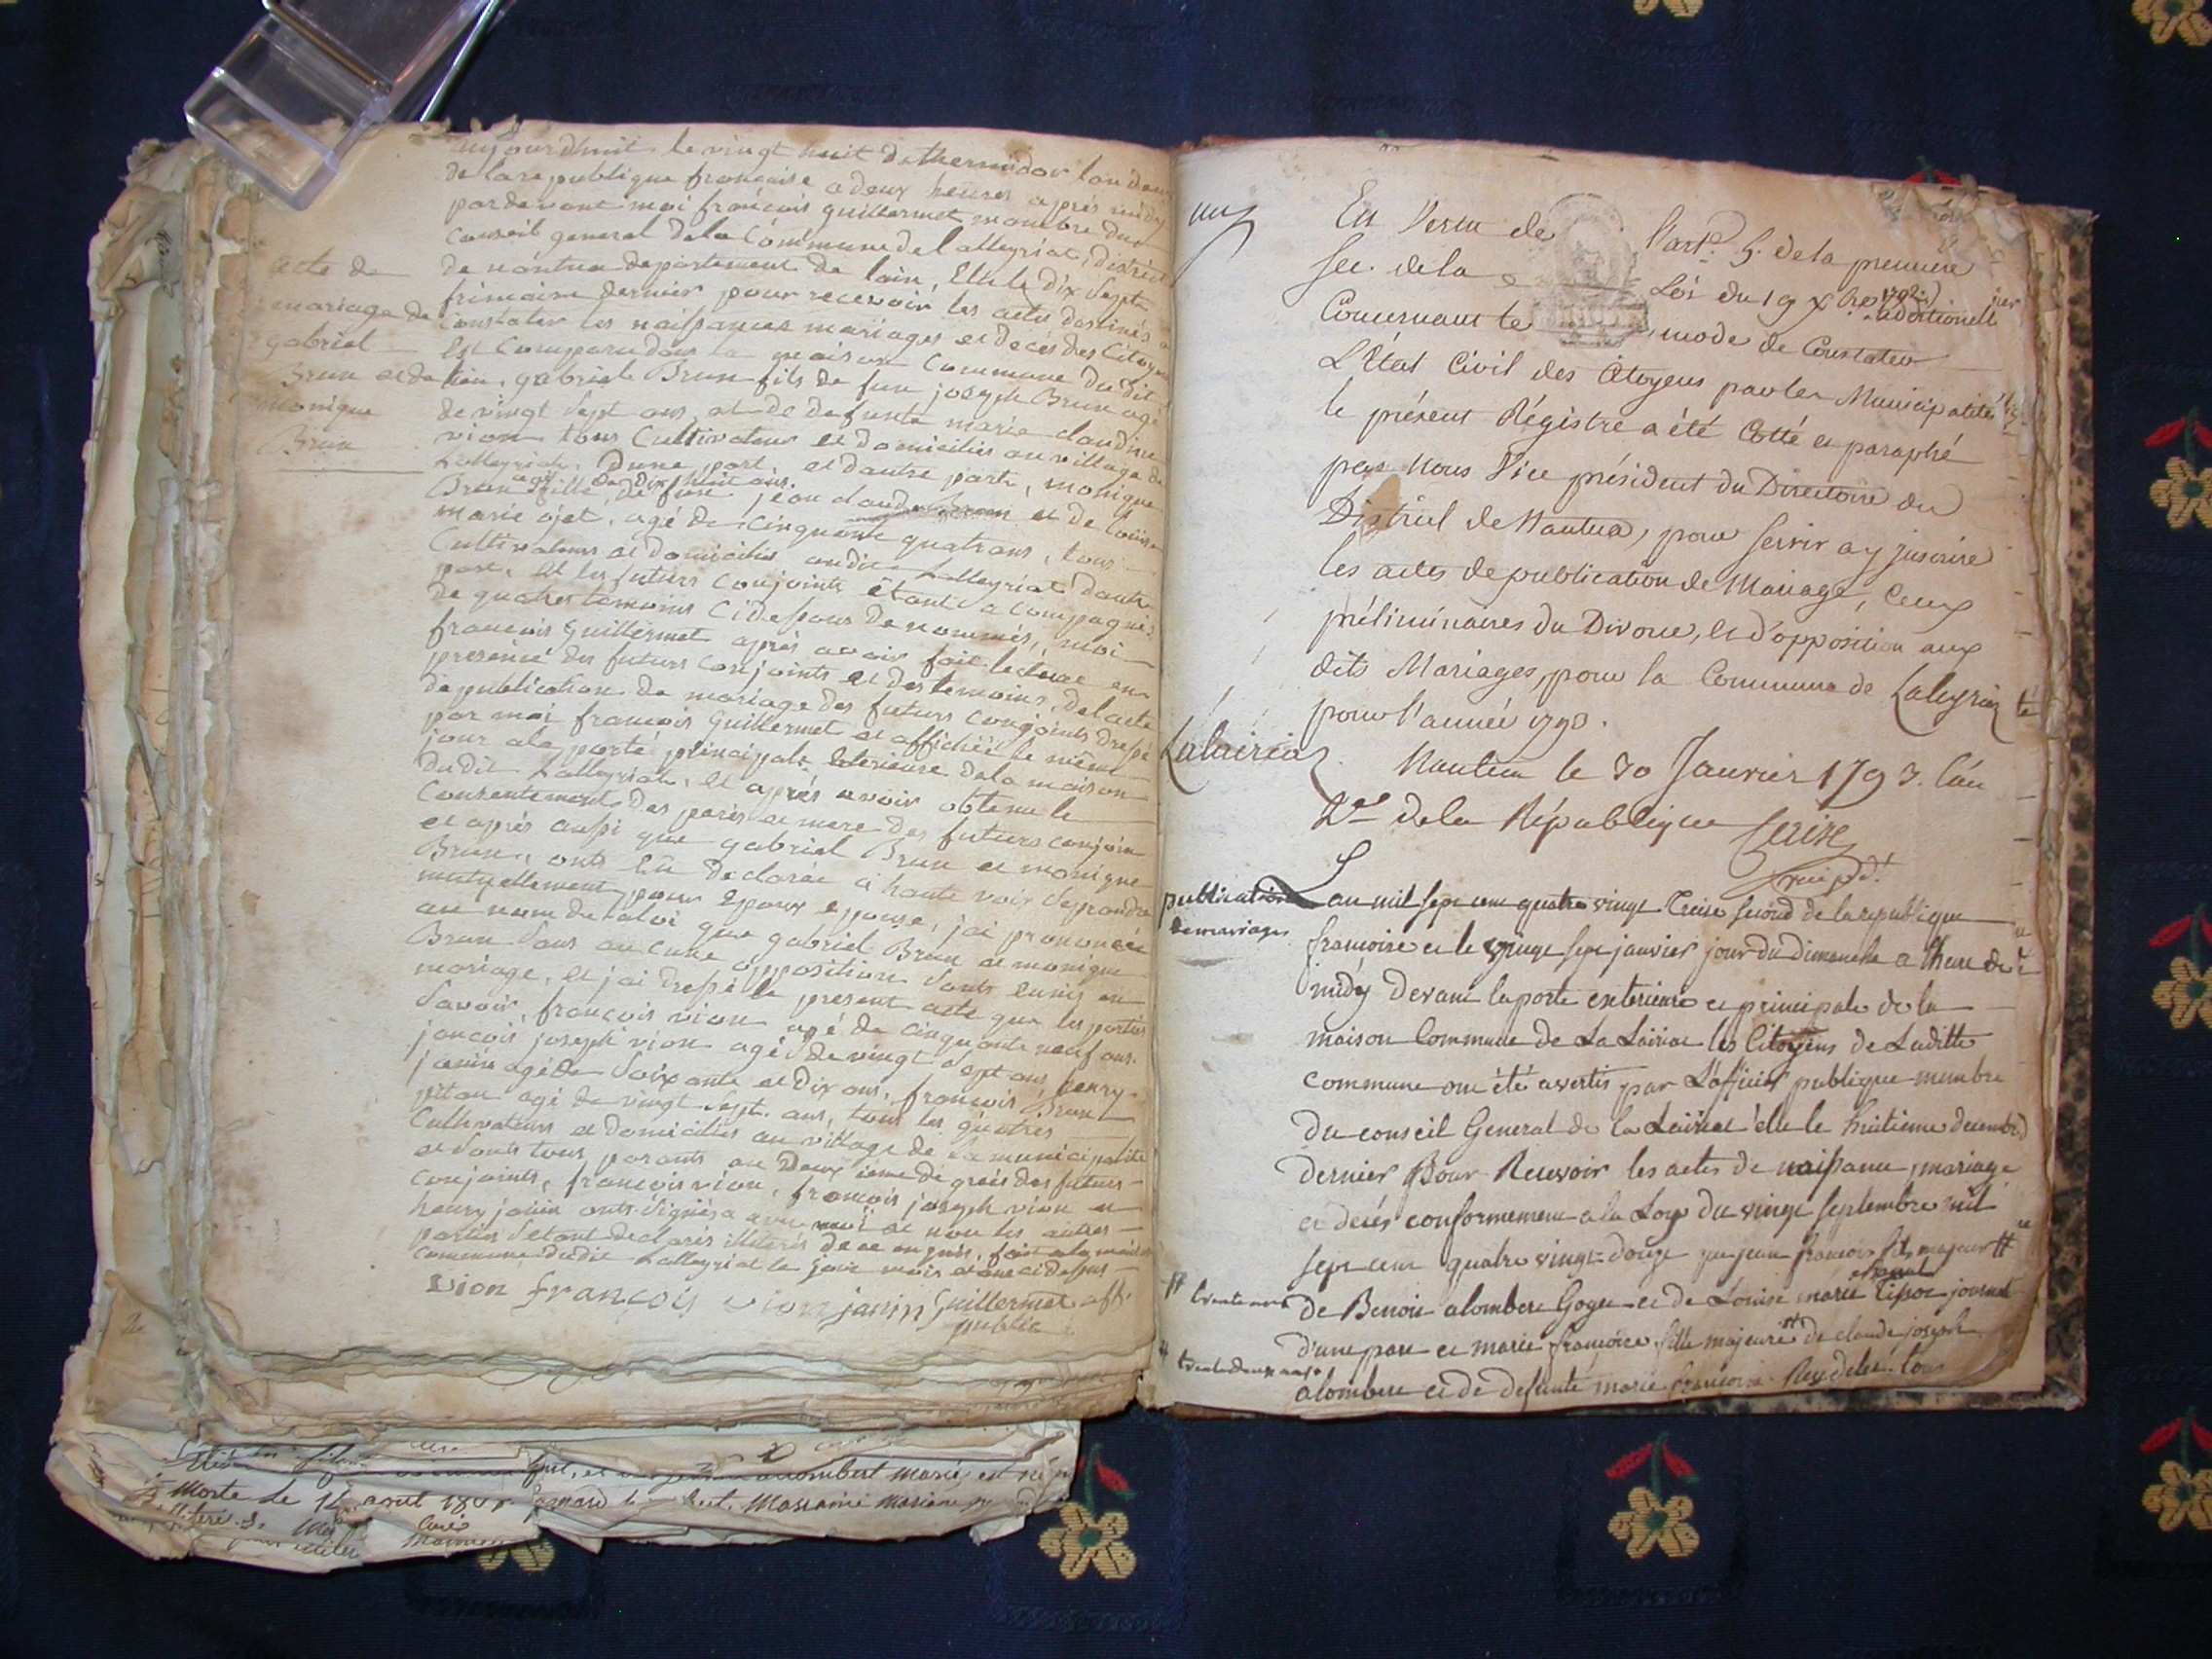 aujourdhuit le vingt huit de thermidor lan deux
de la republique francaise a deux heures aprés midy
par devant moi francois guillermet membre du
conseil general de la commune de lalleyriat, district
de nantua departement de lain, Elu le dix sept
frimaire dernier pour recevoir les actes destinés a
constater les naissances mariages et deces des citoyens
Est comparu dans la maison commune du dit
lieu, gabriel Brun fils de feu joseph Brun agé
de vingt sept ans et de defunte marie claudine
vion tous cultivateurs et domiciliés au village de
Lalleyriat, dune part, et dautre part, monique
agé de dix huit ans
Brun fille de feu jean claude Brun et de louise
marie ojet, agé de cinquante quatr ans, tous
cultivateurs et domiciliés audit Lalleyriat dautre
part, et les futurs conjoints étant acompagnés
de quatres temoins cidessous denommés, moi
francois Guillermet aprés avoir fait lecture en
presence des futurs conjoints et des temoins, de lacte
de publication de mariage des futurs conjoints dressé
par moi francois Guillermet et affichéé le même
jour a la porte principale exterieure de la maison
du dit Lalleyriat, et aprés avoir obtenu le
consentement des pere et mere des futurs conjoin
et aprés aussi que gabriel Brun et monique
Brun, onts eu declarée a haute voix se prendre
mutuellement pour epoux epouse, j'ai prononcée
au nom de la loi que gabriel Brun et monique
Brun sans aucune opposition sonts eunis en
mariage, et jai dressé le present acte que les parties
savoir, francois vion agé de cinquante neuf ans
joseph vion agé de vingt sept ans, henry
janin agé de soixante et dix ans, francois Brun
piton agé de vingt sept ans, tous les quatres
cultivateurs et domiciliés au village de la municipalité
et sonts tous parants au deux ieme de grés des futurs
conjoints, francois vion, francois joseph vion et
henry janin onts signés avec moi et non les autres
parties setant declarés illiterés de ce enquis, fait a la maison
commune dudit Lalleyriat le jour mois et an cidessus
vion françois vion janin Guillermet off.
public
acte de
mariage de
gabriel
Brun et de
monique
Brun
Morte le 14 aout
curé
En Vertu de l'art.e 5. de la premiere
Sec. de la Loi du 19 Xbre 1792
additionell
Concernant le mode de Constater
L'État Civil des Citoyens par les Municipalités
le présent Régistre a été Cotté et paraphé
par Nous Vice président du Directoire du
District de Nantua, pour servir a y inscrire
les actes de publication de Mariage, Ceux
préliminaires du Divorce, et d'opposition aux
dits Mariages, pour la Commune de Laleyriat
pour l'année 1793.
Lalairiat
Nantua le 30 Janvier 1793. l'an
2e de la République
publication
de mariages
L'an mil sept cent quatre vingt treize second de la republique
francoise et le vingt sept janvier jour du dimanche a l'heure de
midÿ devant la porte exterieure et principale de la
maison Commune de La Lairiat les Citoyens de Laditte
commune ont été avertis par L'officier publique membre
du conseil General de la Lairiat élu le huitieme decembre
dernier Pour Recevoir les actes de naissance, mariage
et decés conformement a la Loy du vingt septembre mil
sept cent quatre vingt douze que jean francois fils majeur #
# trente ans
de Benoit alombert Goget et de Louise marie
d'une part et marie francoise fille majeure # de claude joseph
# trente deux ans
alombert et de defunte marie francoise Reydelet tous